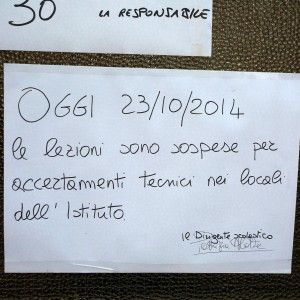 30
LA RESPONSABILE
OGGI 23/10/2014
le lezioni sono sospese per
accertamenti tecnici nei locali
dell'Istituto
Il Dirigente scolastico